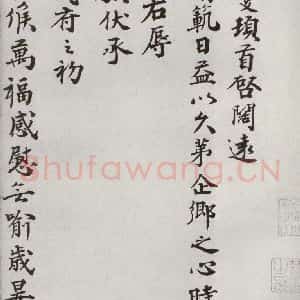 頓首啓闊遠
範日益以久第企鄉之心時
右辱
伏承
府之初
候萬福感慰無喻歲暮
Shufawang.CN